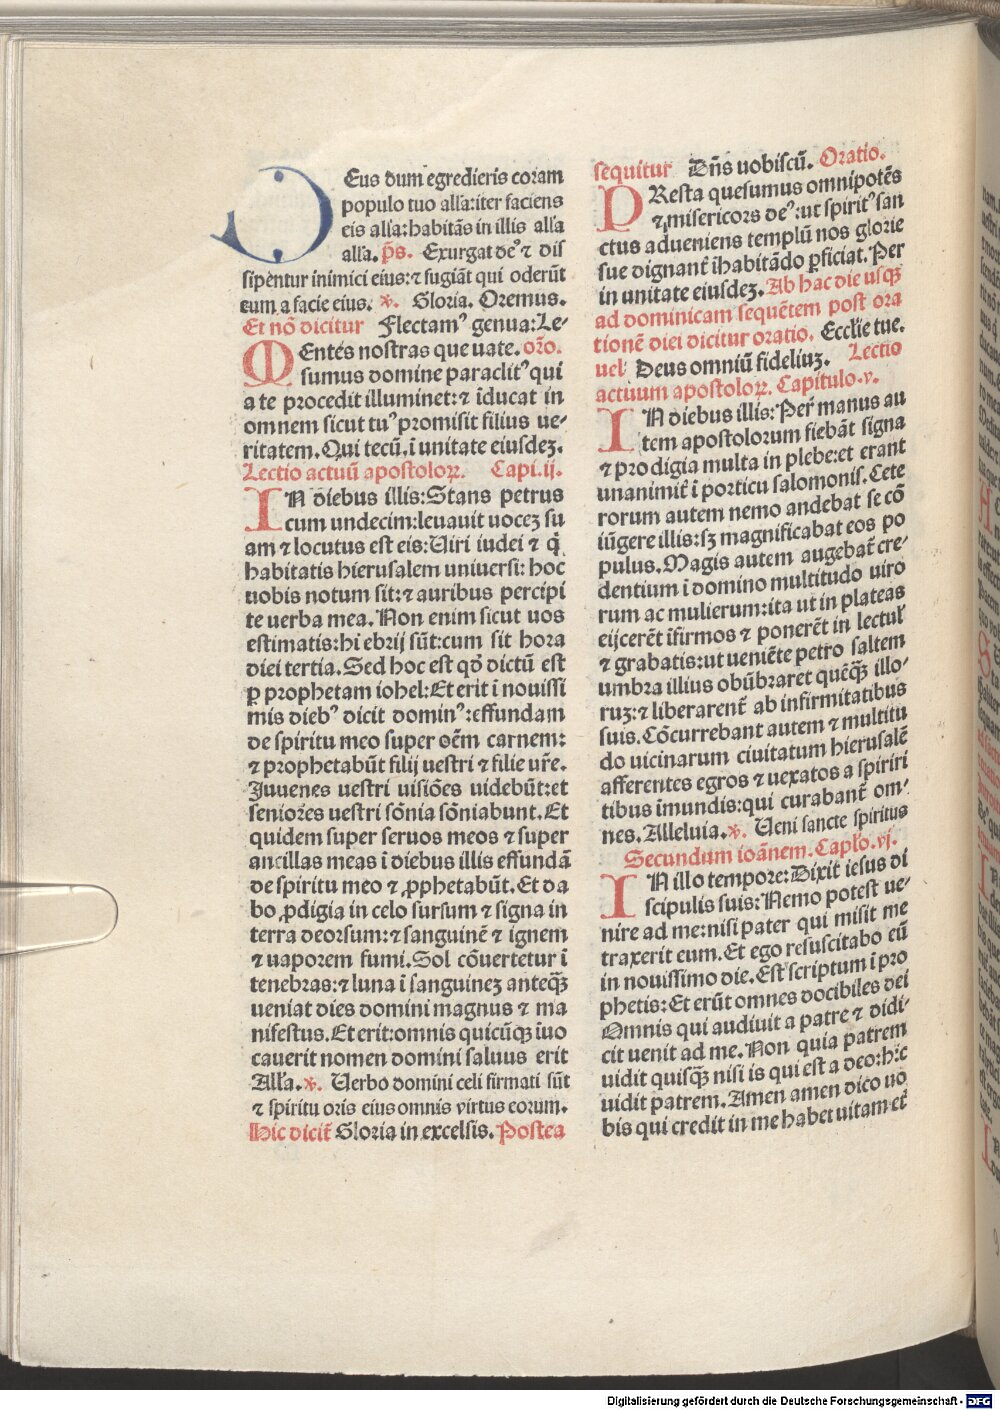 DEus dum egredieris coram
populo tuo all'a:iter faciens
eis all'a:habitās in illis all'a
all'a. p̄s. Exurgat deꝰ ⁊ dis
sipentur inimici eius:⁊ fugiāt qui oderūt
eum a facie eius. ℣. Gloria. Oremus.
Et nō dicitur Flectamꝰ genua:Le⸗
MEntes nostras que uate. or̄o.
sumus domine paraclitꝰ qui
a te procedit illuminet:⁊ īducat in
omnem sicut tuꝰ promisit filius ue⸗
ritatem.Qui tecū.ī unitate eiusdeꝫ.
Lectio actuū apostoloꝝ. Capi.ij.
IN diebus illis:Stans petrus
cum undecim:leuauit uoceꝫ su
am ⁊ locutus est eis:Uiri iudei ⁊ q̇
habitatis hierusalem uniuersi: hoc
uobis notum sit:⁊ auribus percipi
te uerba mea.Non enim sicut uos
estimatis:hi ebrij sūt:cum sit hora
diei tertia.Sed hoc est qō dictū est
ꝑ prophetam iohel:Et erit ī nouissi
mis diebꝰ dicit dominꝰ:effundam
de spiritu meo super oēm carnem:
⁊ prophetabūt filij uestri ⁊ filie ur̄e.
Juuenes uestri uisiōes uidebūt:et
seniores uestri sōnia sōniabunt.Et
quidem super seruos meos ⁊ super
ancillas meas ī diebus illis effundā
de spiritu meo ⁊ ꝓphetabūt.Et da
bo ꝓdigia in celo sursum ⁊ signa in
terra deorsum:⁊ sanguinē ⁊ ignem
⁊ uaporem fumi.Sol cōuertetur ī
tenebras:⁊ luna ī sanguineꝫ anteq̄ꝫ
ueniat dies domini magnus ⁊ ma
nifestus.Et erit:omnis quicūqꝫ īuo
cauerit nomen domini saluus erit
All'a.℣. Uerbo domini celi firmati sūt
⁊ spiritu oris eius omnis virtus eorum.
Hic dicit̄ Gloria in excelsis.Postea
sequitur Dn̄s uobiscū. Oratio.
PResta quesumus omnipotēs
⁊ misericors deꝰ:ut spiritꝰ san
ctus adueniens templū nos glorie
sue dignant̄ īhabitādo ꝑficiat.Per
in unitate eiusdeꝫ.Ab hac die usqꝫ
ad dominicam sequētem post ora
tionē diei dicitur oratio. Ecclie tue.
uel Deus omniū fideliuꝫ. Lectio
actuum apostoloꝝ. Capitulo.v.
IN diebus illis:Per manus au
tem apostolorum fiebāt signa
⁊ prodigia multa in plebe:et erant
unanimit̄ ī porticu salomonis.Cete
rorum autem nemo andebat se cō
iūgere illis:sꝫ magnificabat eos po
pulus.Magis autem augebat̄ cre⸗
dentium ī domino multitudo uiro
rum ac mulierum:ita ut in plateas
eijcerēt īfirmos ⁊ ponerēt in lectul'
⁊ grabatis:ut ueniēte petro saltem
umbra illius obūbraret quēq̄ꝫ illo⸗
ruꝫ:⁊ liberarent̄ ab infirmitatibus
suis.Cōcurrebant autem ⁊ multitu
do uicinarum ciuitatum hierusalē
afferentes egros ⁊ uexatos a spiriri
tibus īmundis:qui curabant̄ om⸗
nes.Alleluia.℣. Ueni sancte spiritus
Secundum ioānem.Caplo.vj.
IN illo tempore:Dixit iesus di
scipulis suis:Nemo potest ue⸗
nire ad me:nisi pater qui misit me
traxerit eum.Et ego resuscitabo eū
in nouissimo die.Est scriptum ī pro
phetis:Et erūt omnes docibiles dei
Omnis qui audiuit a patre ⁊ didi⸗
cit uenit ad me.Non quia patrem
uidit quisq̄ꝫ nisi is qui est a deo:hic
uidit patrem.Amen amen dico uo
bis qui credit in me habet uitam et̄
Digitalisierung gefördert durch die Deutsche Forschungsgemeinschaft - DFG